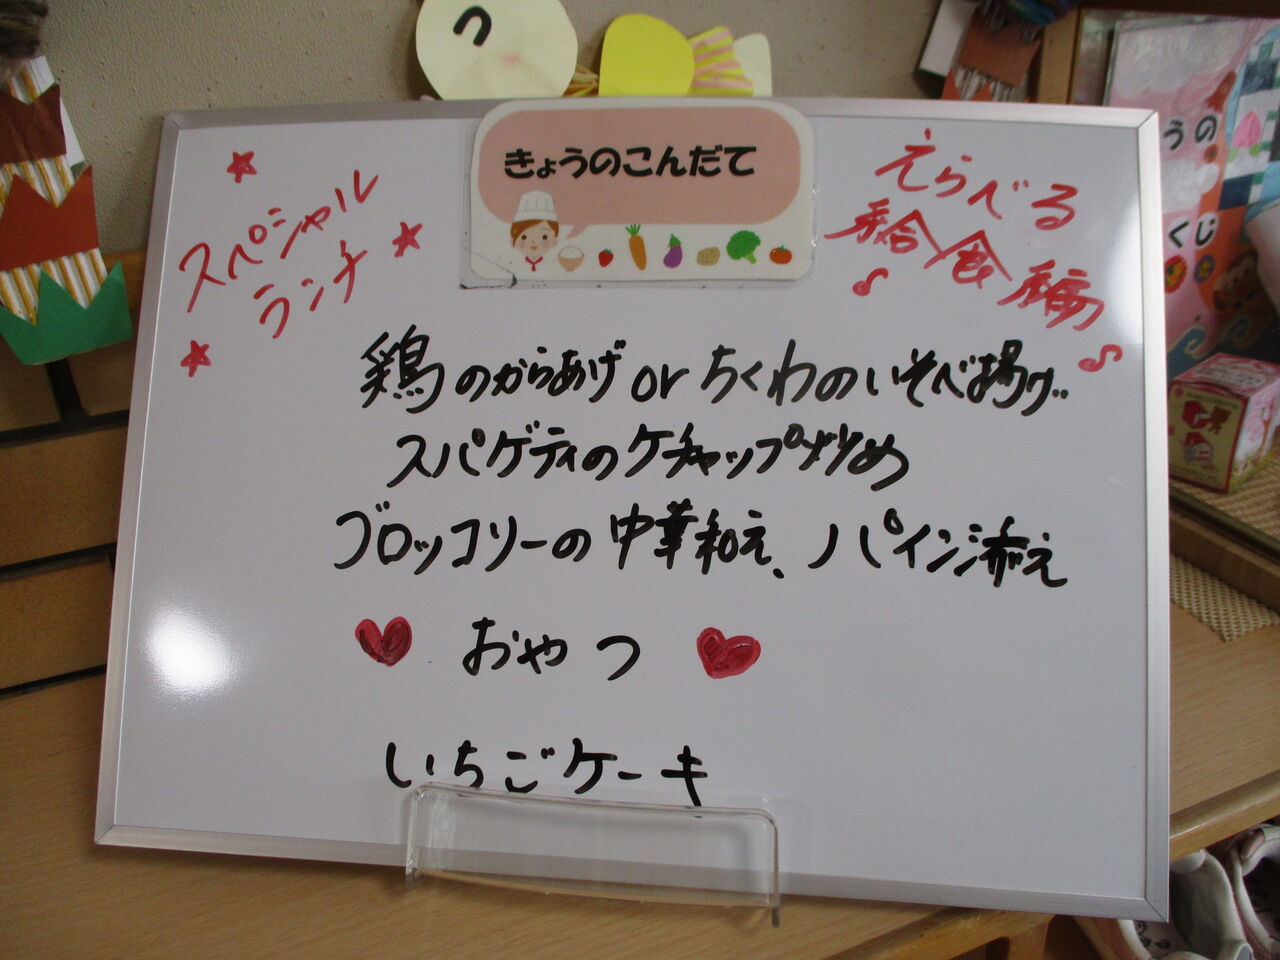 きょうのこんだて
スペシャル
ランチ
えらべる
給食編
鶏のからあげ or ちくわのいそべ揚げ
スパゲティのケチャップ炒め
ブロッコリーの中華和え、パイン添え
おやつ
いちごケーキ
うの
くじ